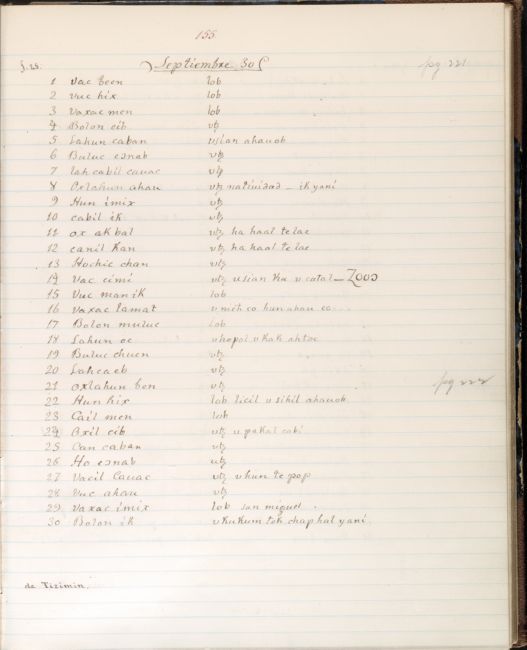 155
f. 25. Septiembre 30 pg 221
1 Vac been lob
2 Vuc hix lob
3 Vaxac men lob
4 Bolon cib vtz
5 Lahun caban vsian ahauob
6 Buluc eɔnab vtz
7 lah cabil cauac vtz
8 Oxlahun ahau vtz natiuidad _ ik yani
9 Hun imix vtz
10 cabil ik vtz
11 ox ak bal vtz ha haal te lae
12 canil Kan vtz ha haal te lae
13 Hochic chan vtz
14 Vac cimi vtz usian ku v catal _ Zooɔ
15 Vuc manik lob
16 Vaxac lamat v meh co hun ahau co
17 Bolon muluc lob
18 Lahun oc vhopol v kak ahtoc
19 Buluc chuen vtz
20 Lahca eb vtz
21 oxlahun ben vtz pg 222
22 Hun hix lob licil v sihil ahauob
23 Cail men lob
24 Oxil cib vtz u pakal cabi
25 Can caban vtz
26 Ho eɔnab utz
27 Vacil Cauac vtz vhun te pop
28 Vuc ahau vtz
29 Vaxac imix lob san miguel
30 Bolon ik v kukum tok chaphal yani
de Tizimin.